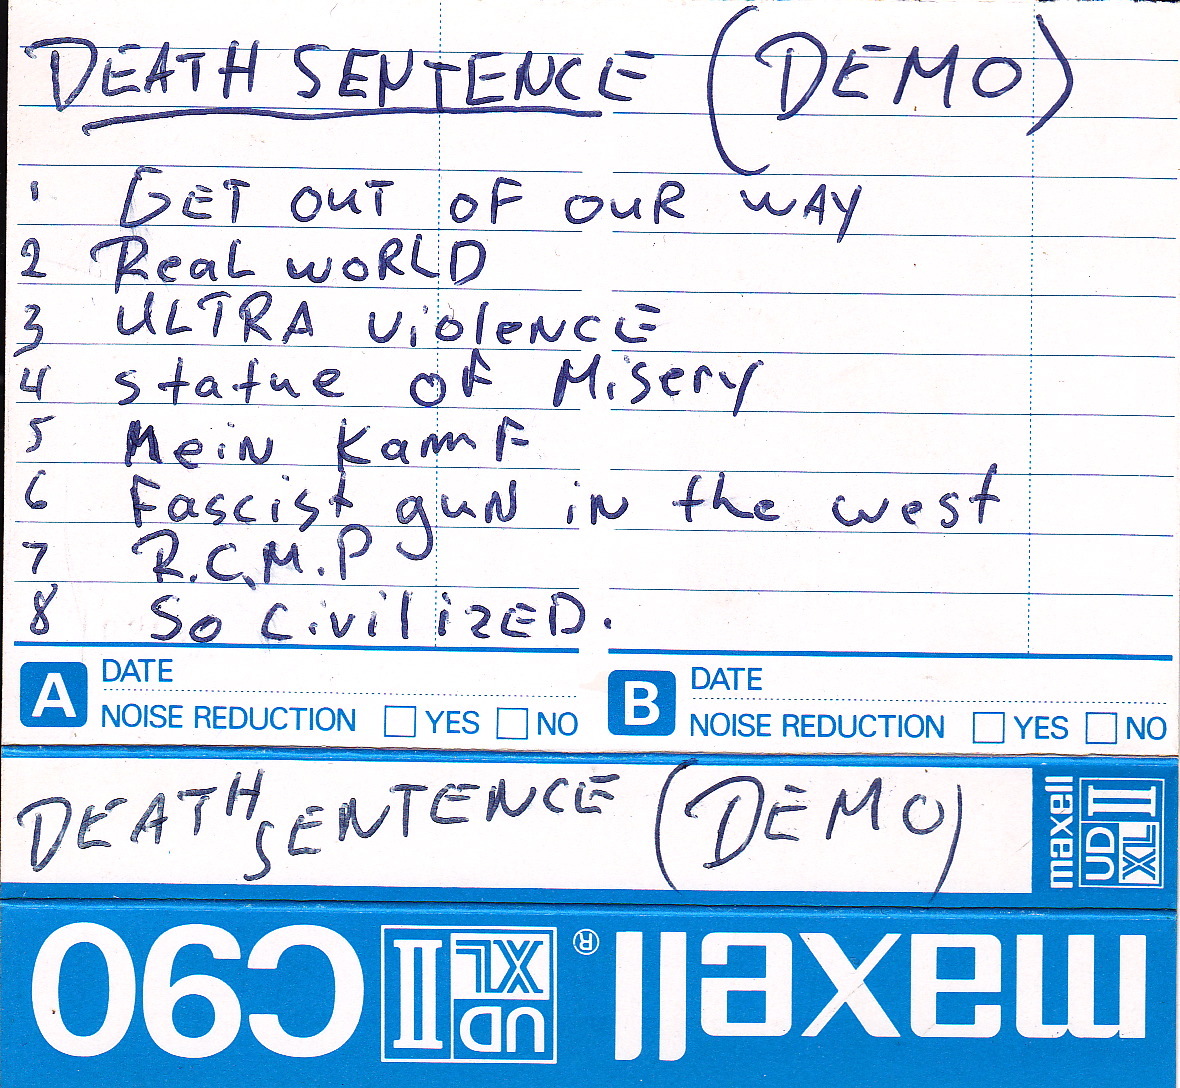 DEATH SENTENCE (DEMO)
1 GET OUT OF OUR WAY
2 ReaL WoRLD
3 ULTRA ViolenCE
4 Statue OF Misery
5 Mein KamF
6 Fascist guN iN the west
7 R.C.M.P
8 So CivilizED.
A DATE
NOISE REDUCTION YES NO
B DATE
NOISE REDUCTION YES NO
DEATH SENTENCE (DEMO)
maxell UD XL II
maxell® UD XL II C90